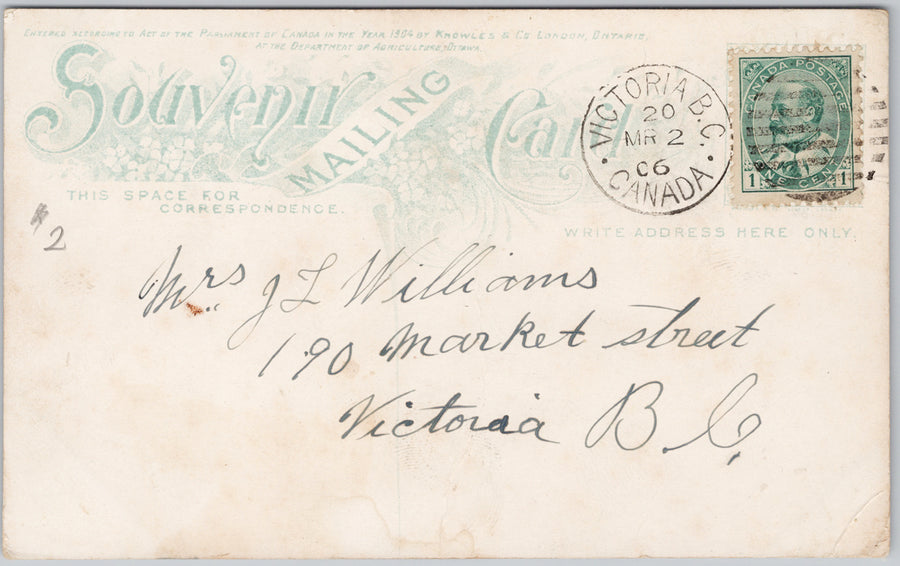 ENTERED ACCORDING TO ACT OF THE PARLIAMENT OF CANADA IN THE YEAR 1904 BY KNOWLES & CO LONDON, ONTARIO,
AT THE DEPARTMENT OF AGRICULTURE, OTTAWA.
Souvenir
MAILING
Card
THIS SPACE FOR
CORRESPONDENCE.
VICTORIA B.C.
20
MR 2
06
CANADA
CANADA POSTAGE
1 ONE CENT 1
WRITE ADDRESS HERE ONLY.
2
Mrs J L Williams
190 Market street
Victoria B C,